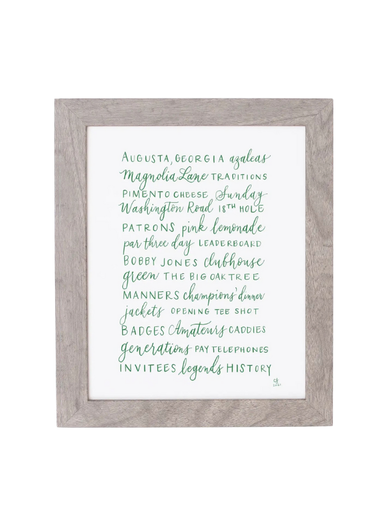 AUGUSTA, GEORGIA azaleas
Magnolia Lane TRADITIONS
PIMENTO CHEESE Sunday
Washington Road 18TH HOLE
PATRONS pink lemonade
par three day LEADERBOARD
BOBBY JONES clubhouse
green THE BIG OAK TREE
MANNERS champions' dinner
jackets OPENING TEE SHOT
BADGES Amateurs CADDIES
generations PAY TELEPHONES
INVITEES legends HISTORY